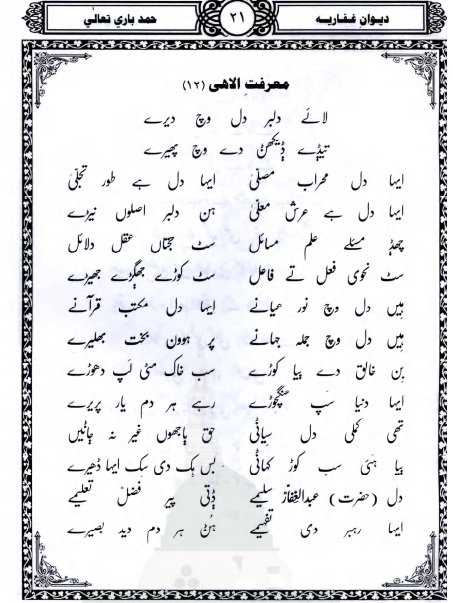 ديوانِ غفاريه
٢١
حمد باري تعاليٰ
معرفتِ الاهي (١٢)
لائے دلبر دل وچ دیرے
تیݙے ݙیکھݨ دے وچ پھیرے
ایہا دل محراب مصلیٰ ایہا دل ہے طور تجلیٰ
ایہا دل ہے عرش معلیٰ ہن دلبر اصلوں نیڑے
چھݙ مسئلے علم مسائل سٹ حجتاں عقل دلائل
سٹ نحوی فعل تے فاعل سٹ کوڑے جھگڑے جھیڑے
ہیں دل وچ نور عیانے ایہا دل مکتب قرآنے
ہیں دل وچ جملہ جہانے پر ہوون بخت بھلیرے
بِن خالق دے بیا کوڑے سب خاک مٹی لَپ دھوڑے
ایہا دنیا سَپ ہنگچوڑے رہے ہر دم یار پریرے
تھی کملی دل سیاݨی حق باجھوں غیر نہ ڄاݨیں
بیا ہئی سب کوڑ کہاݨی بس ہِک دی سِک ایہا ڈھیرے
دل (حضرت) عبدالغفارؒ سلیمے ݙتی پیر فضلؒ تعلیمے
ایسا رہبر دی تفہیمے ہُݨ ہر دم دید بصیرے